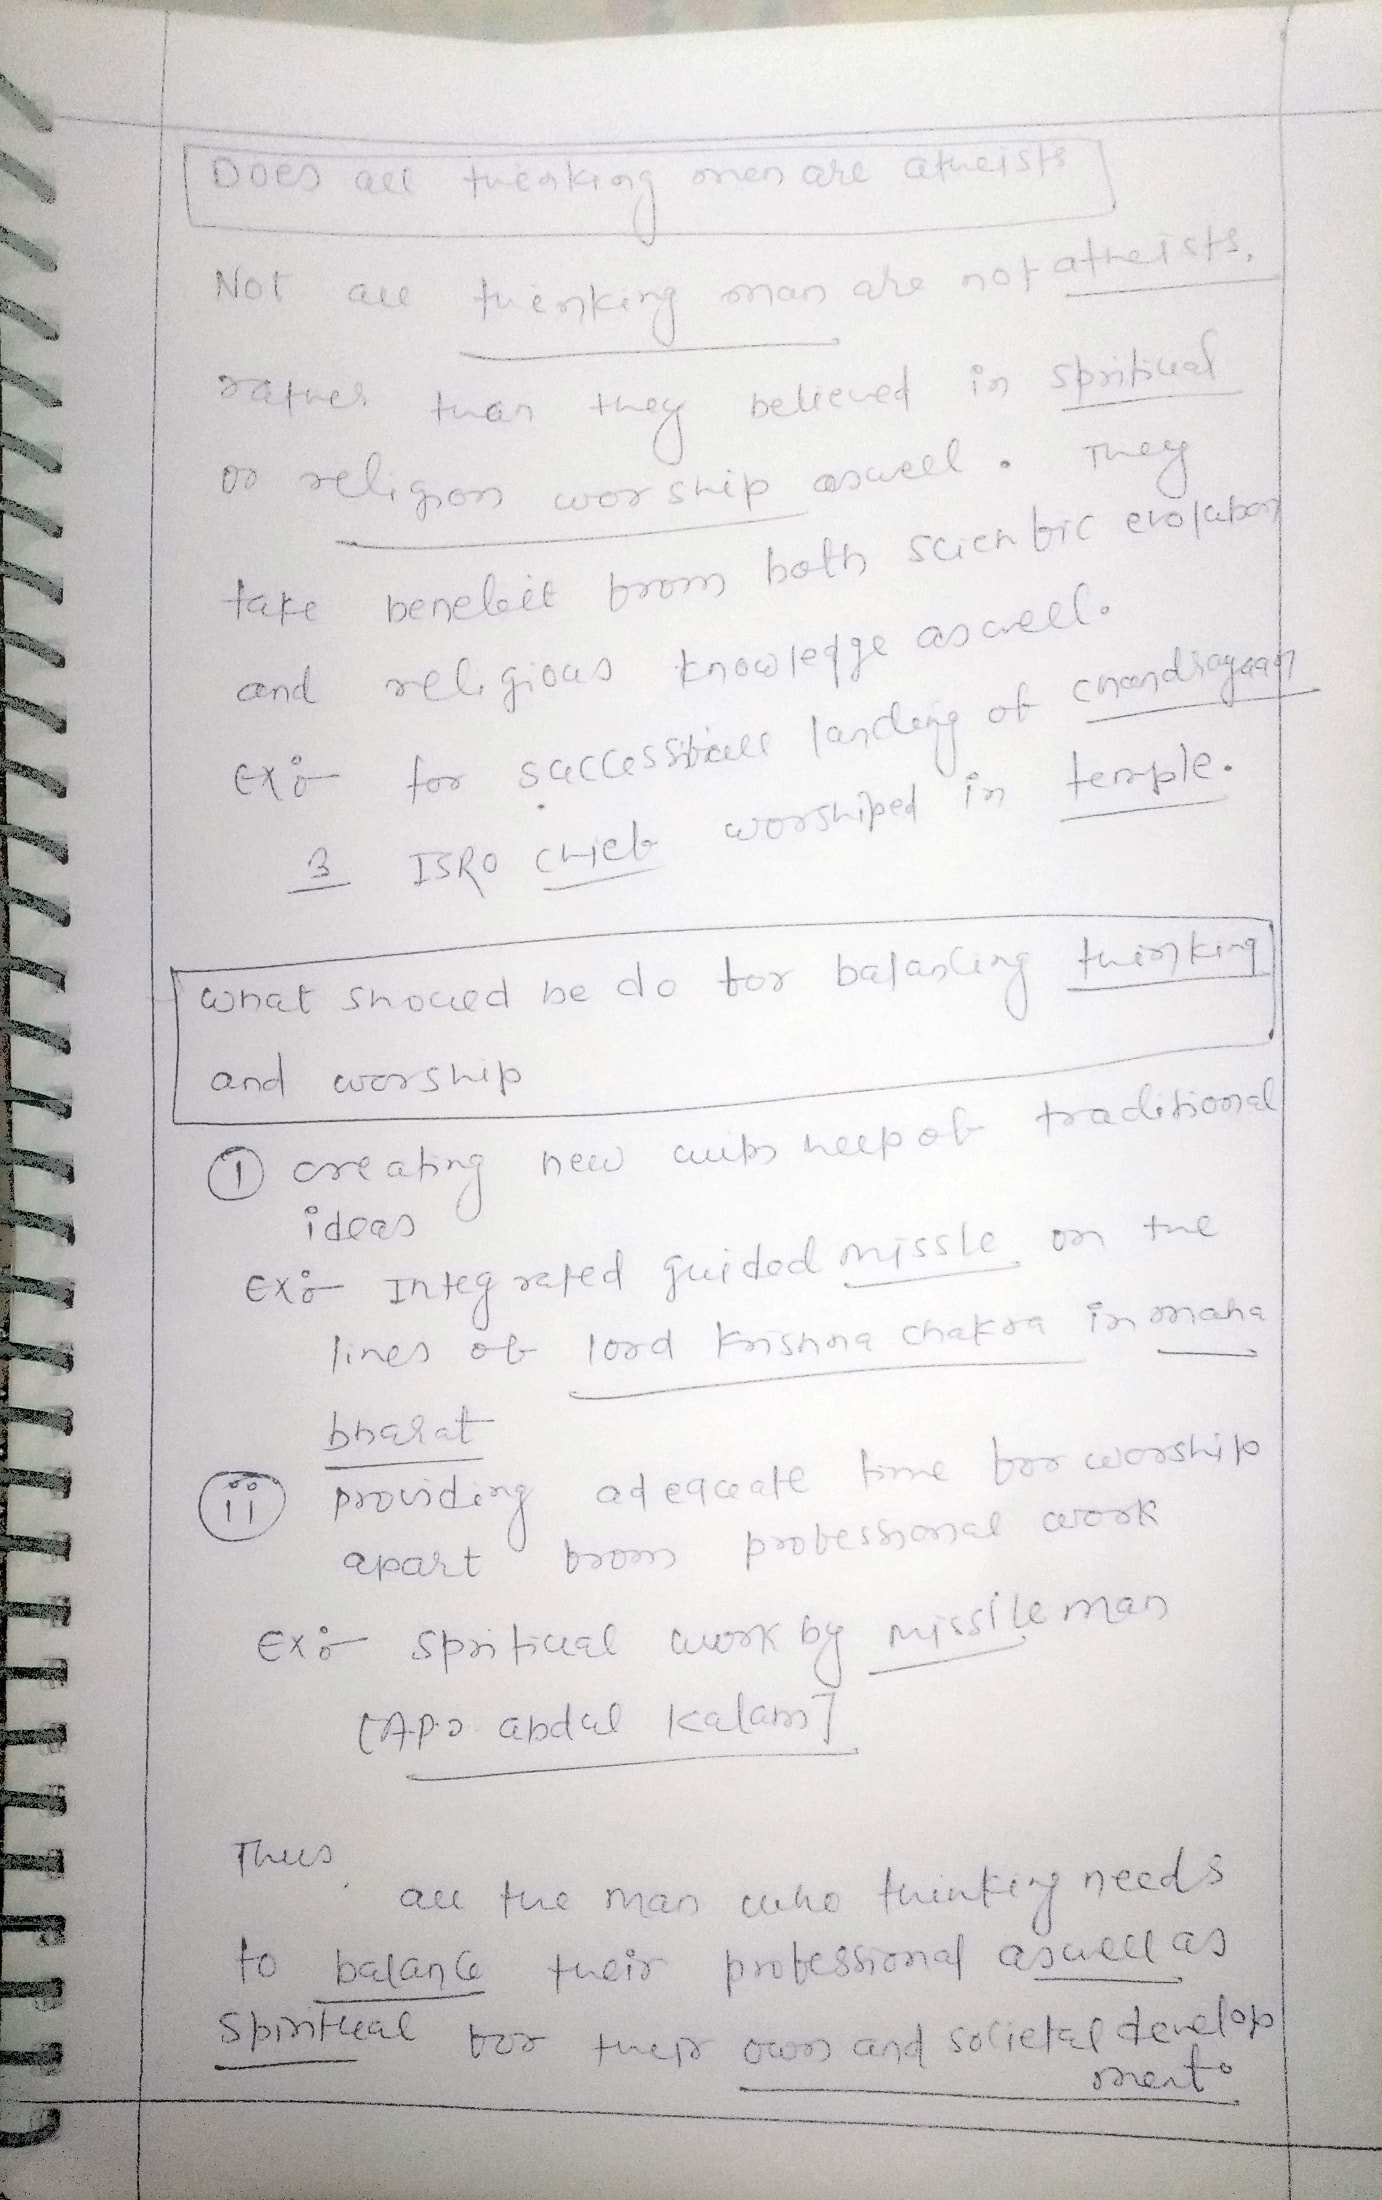 Does all thinking men are atheists
Not all thinking man are not atheists,
rather than they believed in spritual
or religion worship aswell. They
take benefit from both scientific evolution
and religious knowledge aswell.
Ex:- for successfull landing of chandrayaan
3 ISRO chief worshiped in temple.
what should be do for balancing thinking
and worship
(i) creating new with help of traditional
ideas
Ex:- Integrated guided missle on the
lines of lord krishna chakra in maha
bharat
(ii) providing adequate time for worship
apart from professional work
Ex:- spritual work by missile man
[APJ abdul kalam]
Thus,
all the man who thinking needs
to balance their professional aswell as
spiritual for their own and societal develop
ment.